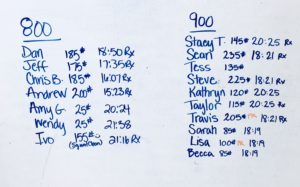 800
Dan 185# 18:50 Rx
Jeff 175# 17:35 Rx
Chris B. 185# 16:07 Rx
Andrew 200# 15:23 Rx
Amy G. 25# 20:24
Wendy 25# 21:38
Ivo 155# 21:16 Rx
900
Stacy T. 145# 20:25 Rx
Sean 235# 18:21 Rx
Tess 135#
Steve 225# 18:21 Rx
Kathryn 120# 20:25
Taylor 115# 20:25 Rx
Travis 205# PR 18:21 Rx
Sarah 85# 18:19
Lisa 100# PR 18:19
Becca 85# 18:19